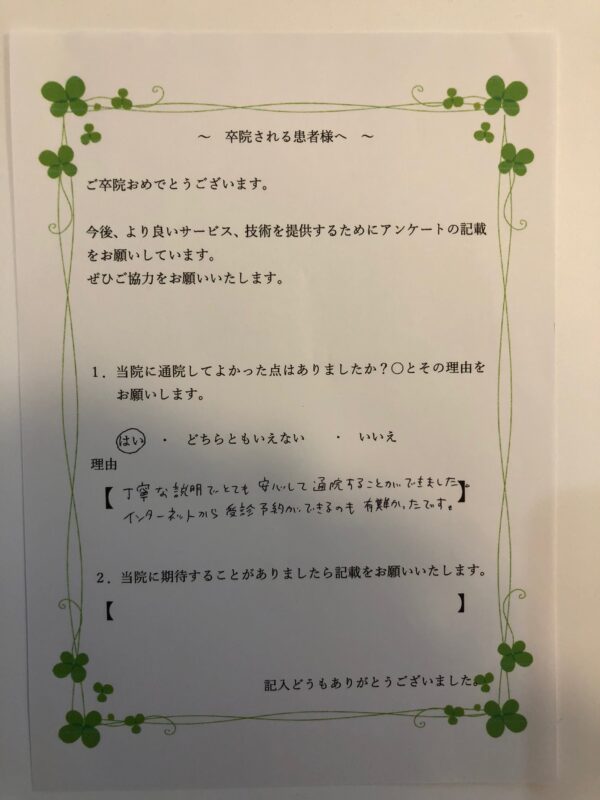 ～　卒院される患者様へ　～
ご卒院おめでとうございます。
今後、より良いサービス、技術を提供するためにアンケートの記載
をお願いしています。
ぜひご協力をお願いいたします。
１．当院に通院してよかった点はありましたか？〇とその理由を
お願いします。
はい　・　どちらともいえない　・　いいえ
理由
【丁寧な説明でとても安心して通院することができました。】
インターネットから受診予約ができるのも有難かったです。
２．当院に期待することがありましたら記載をお願いいたします。
【　　】
記入どうもありがとうございました。